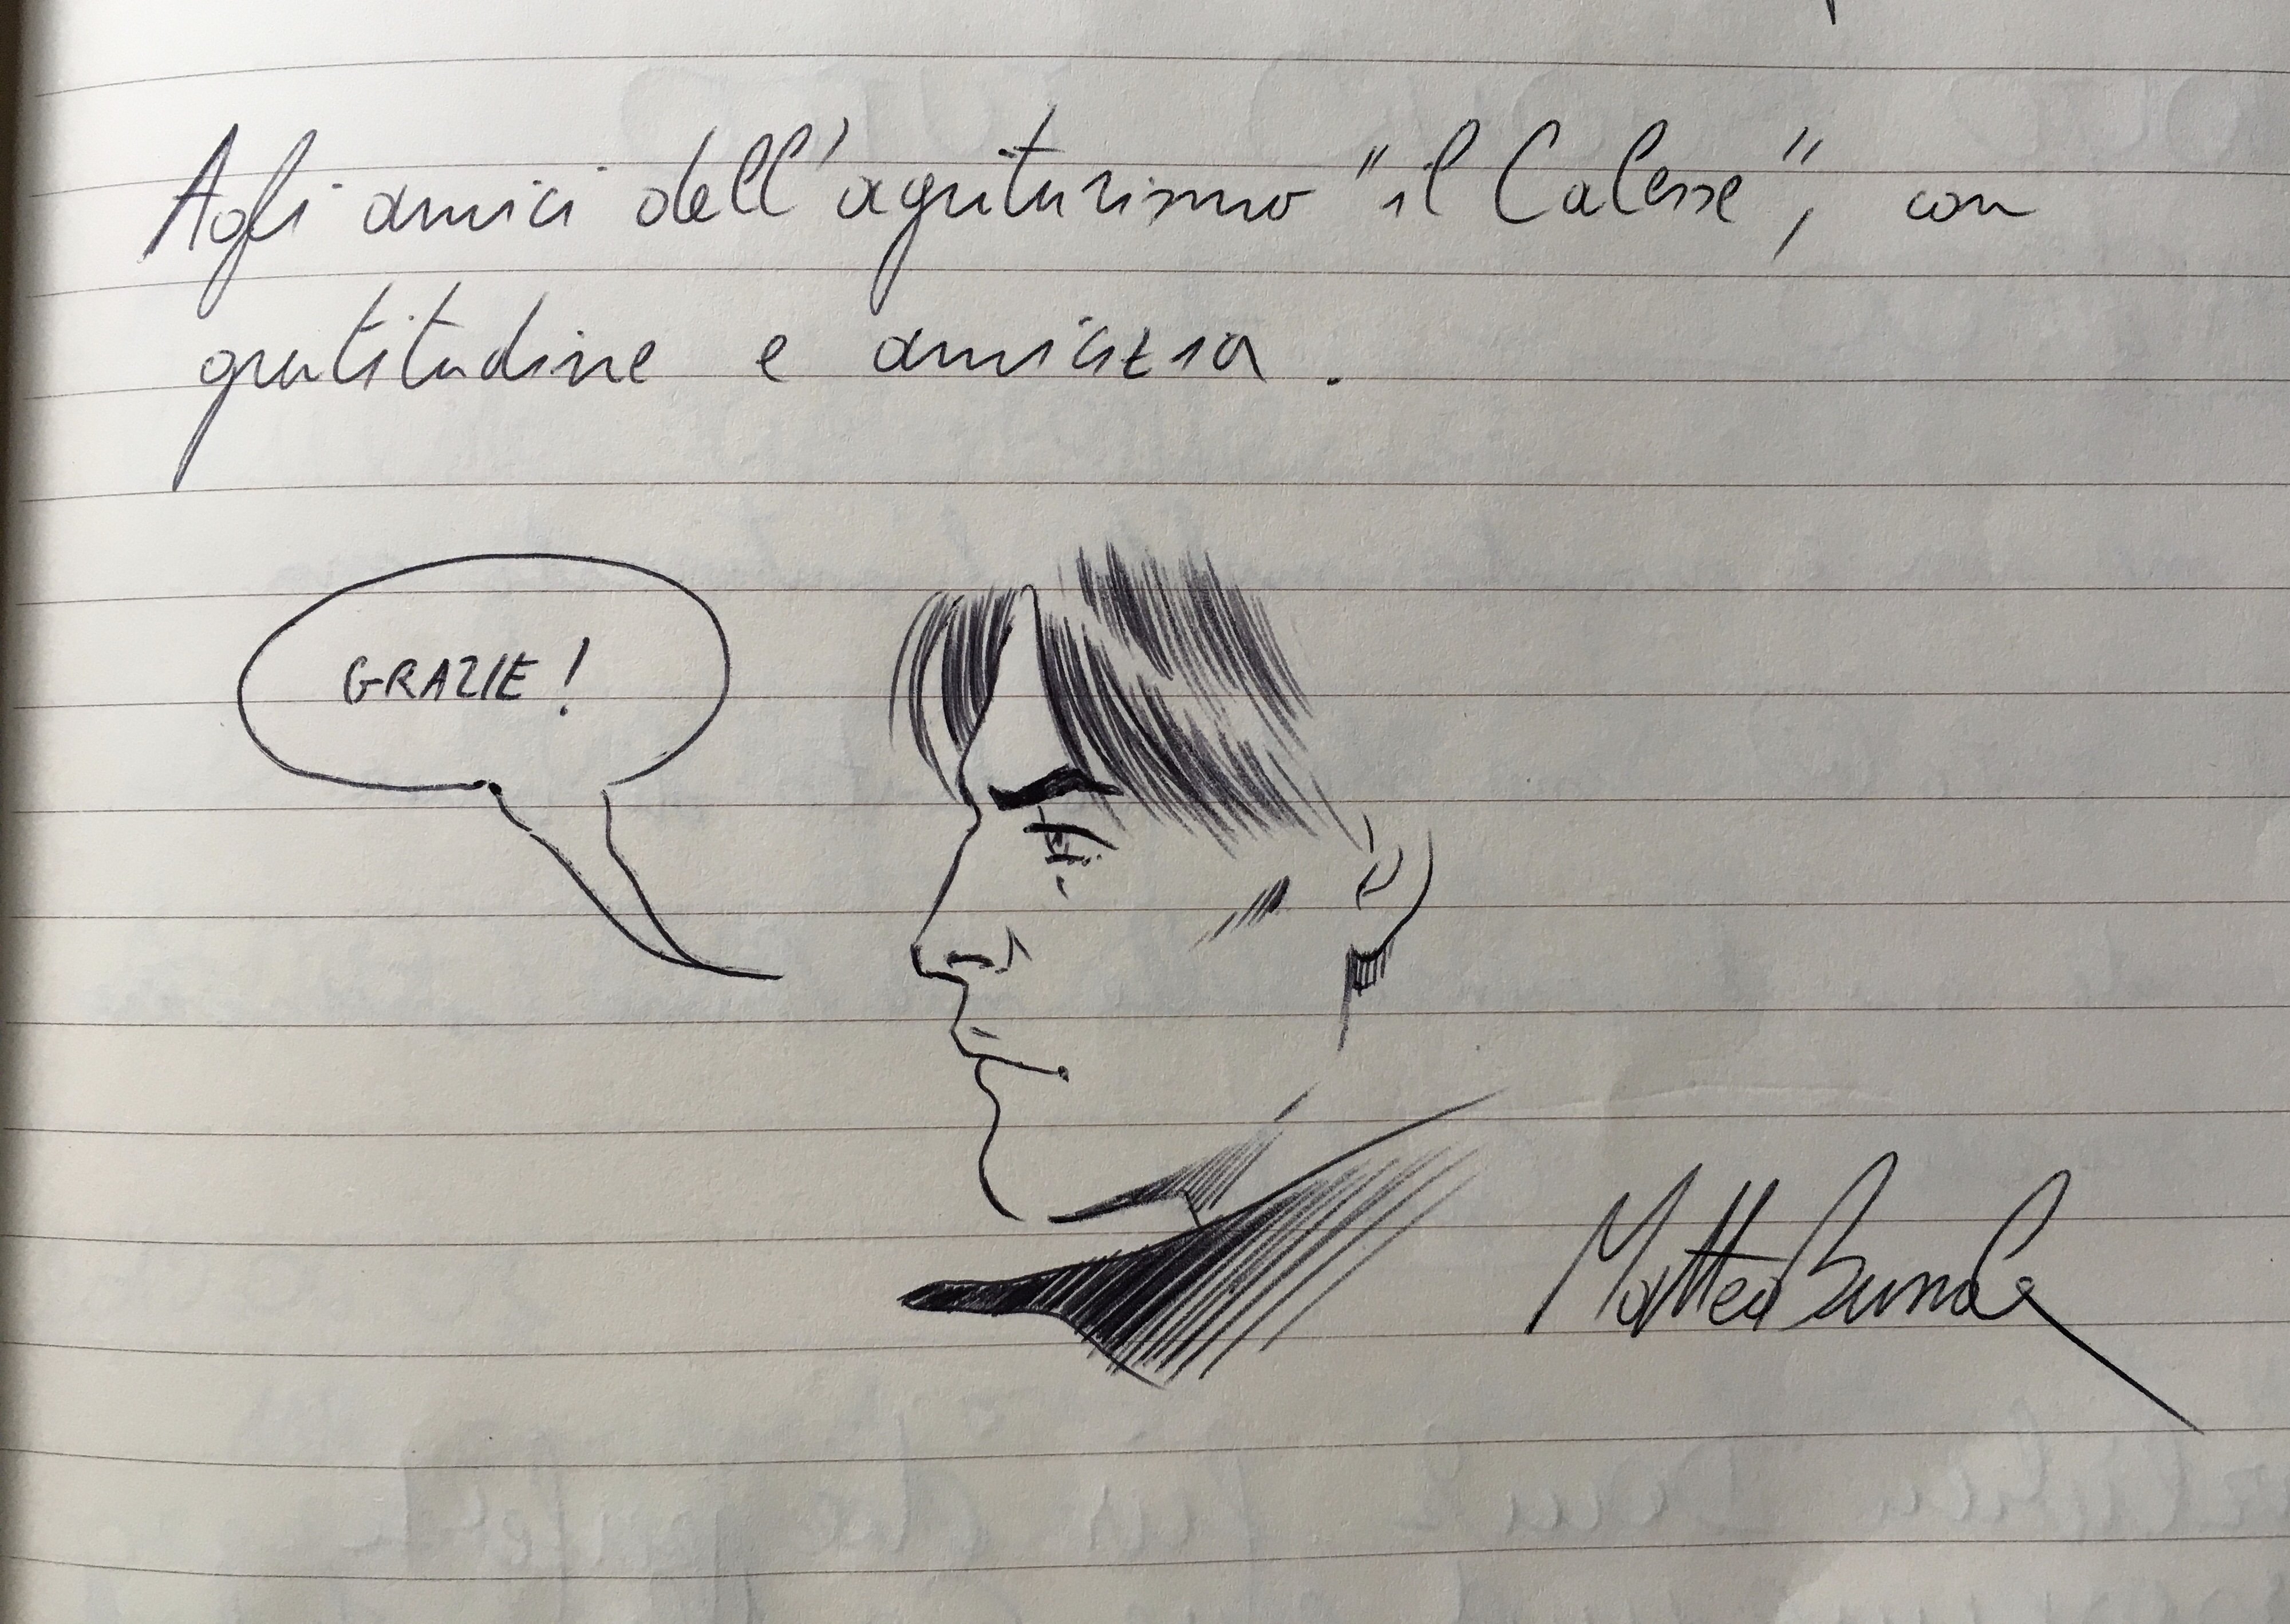 Agli amici dell'agriturismo "il Calesse", con
gratitudine e amicizia.
GRAZIE!
Matteo